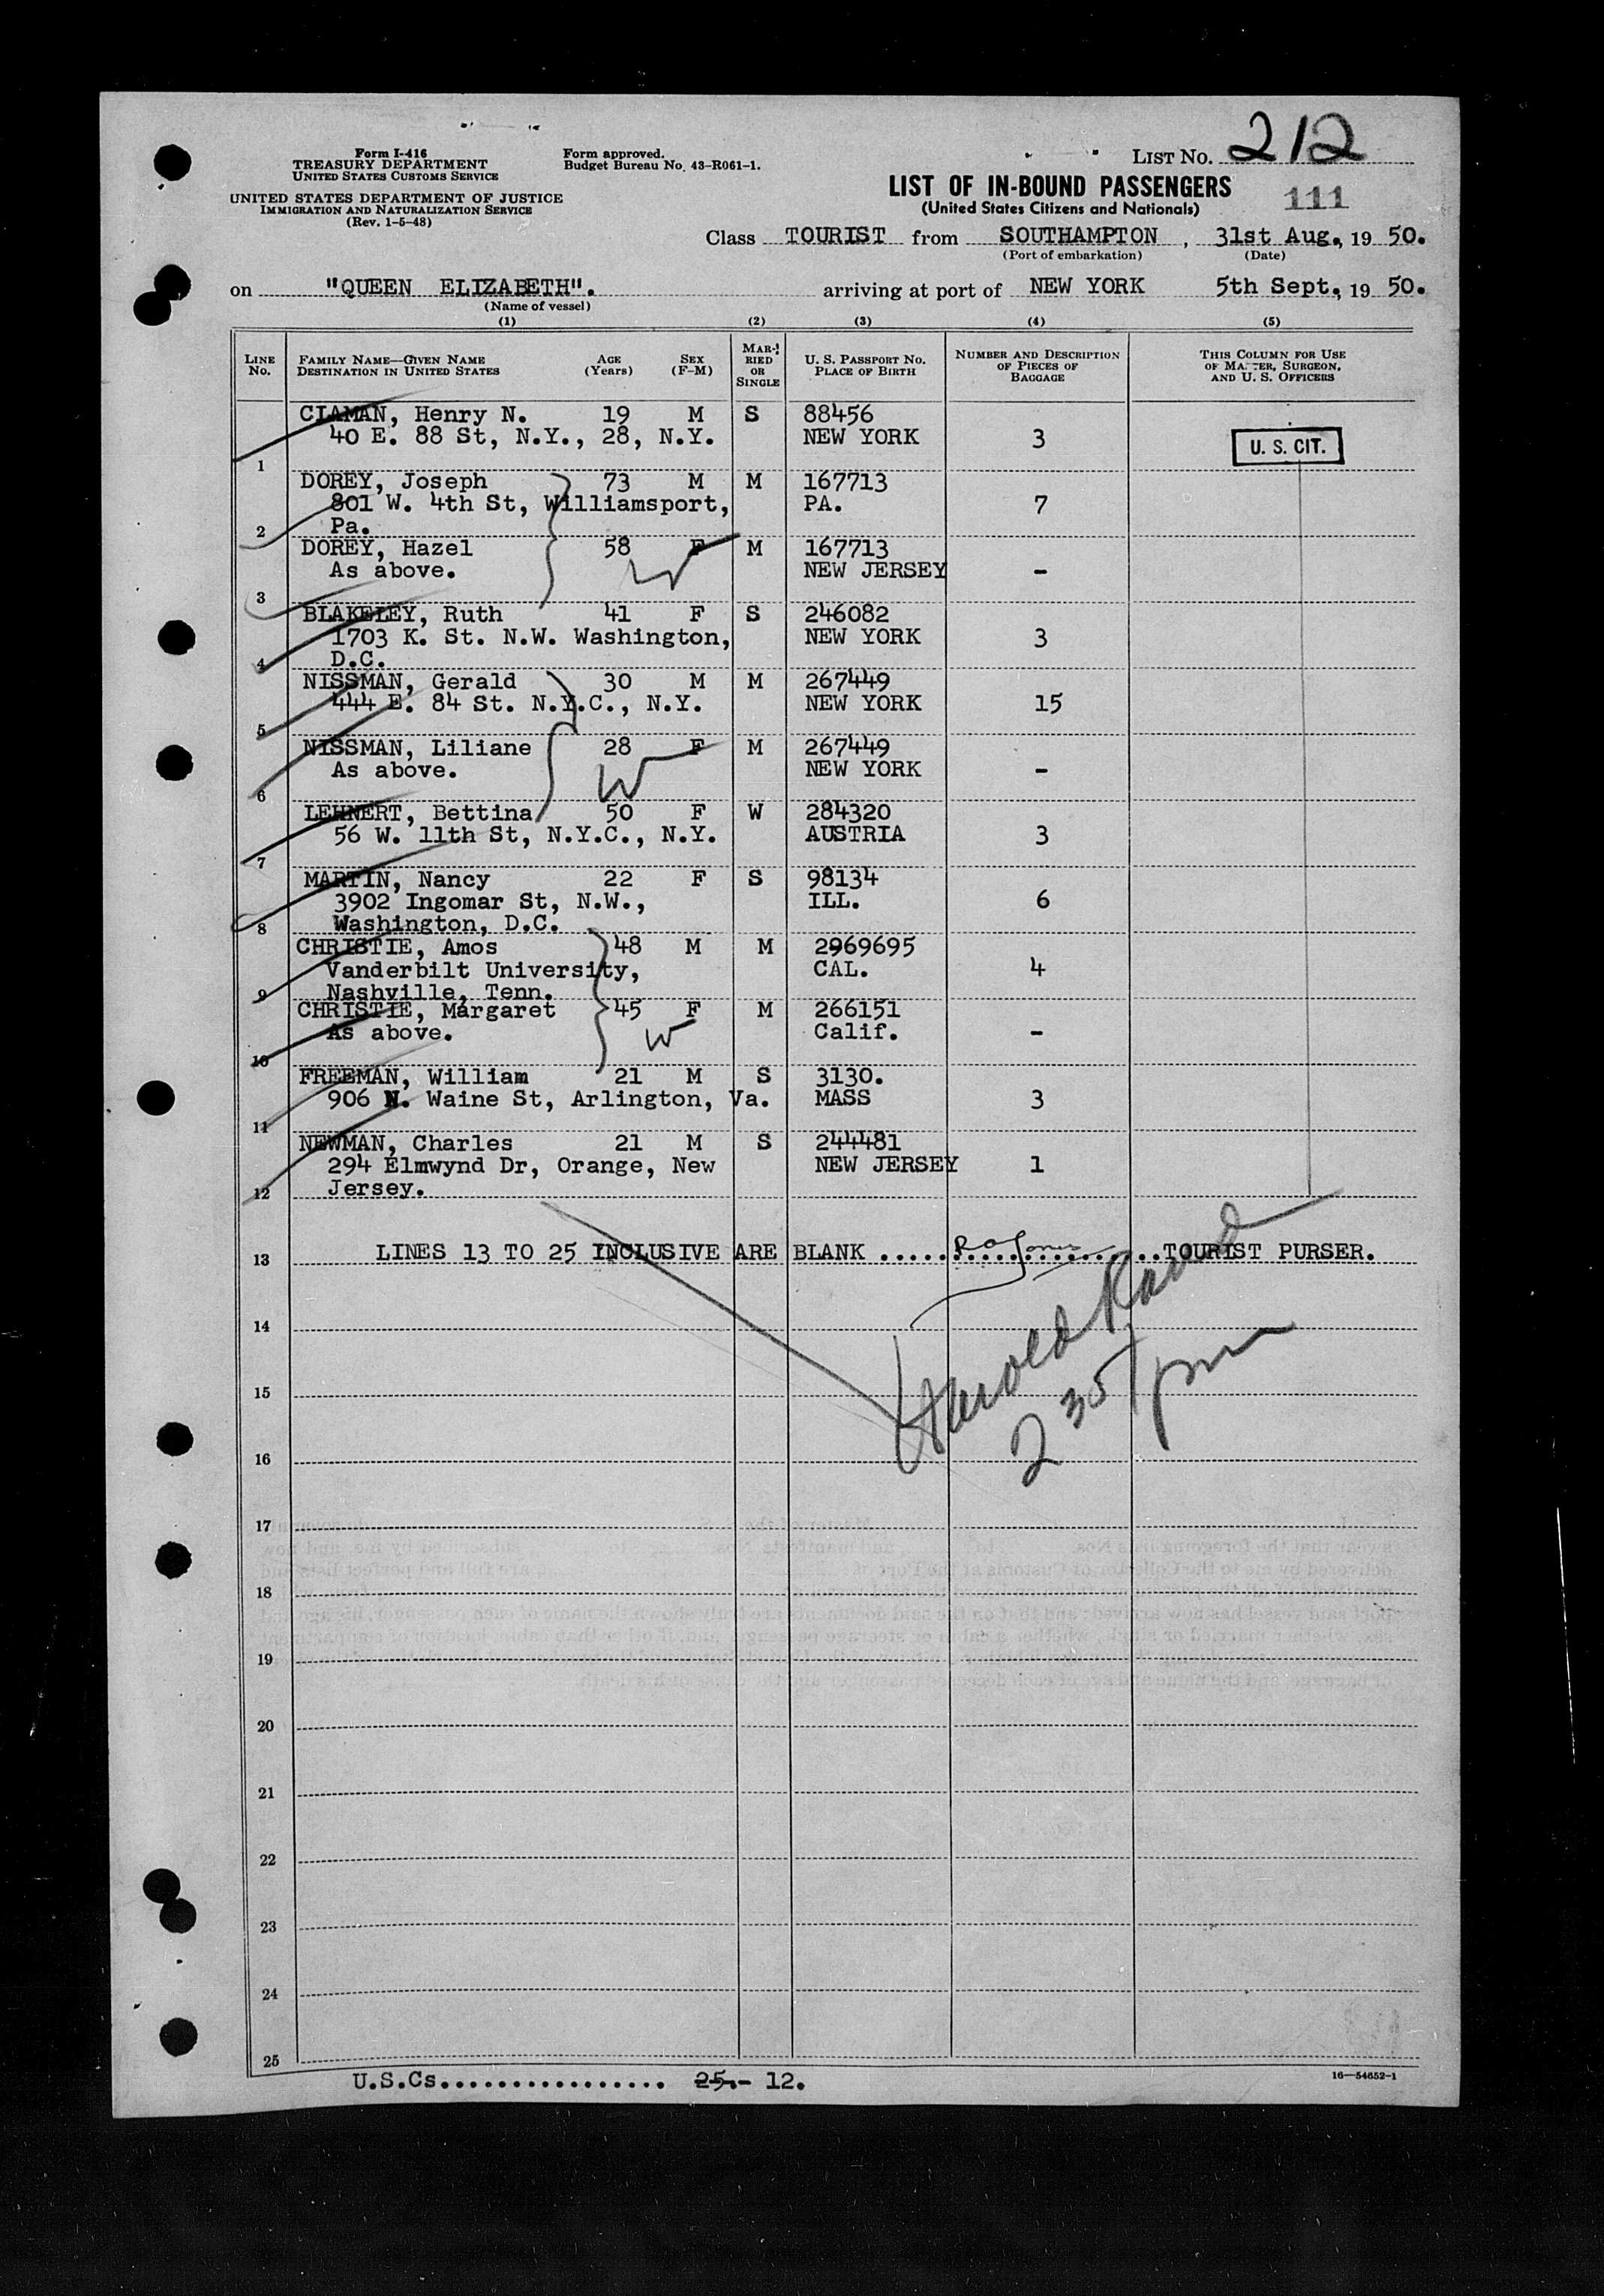 Form I-416
TREASURY DEPARTMENT
UNITED STATES CUSTOMS SERVICE
UNITED STATES DEPARTMENT OF JUSTICE
IMMIGRATION AND NATURALIZATION SERVICE
(Rev. 1-5-48)
Form approved.
Budget Bureau No. 43-R061-1.
LIST NO. 212
LIST OF IN-BOUND PASSENGERS
(United States Citizens and Nationals)
111
Class TOURIST from SOUTHAMPTON, 31st Aug., 19 50.
(Port of embarkation) (Date)
on "QUEEN ELIZABETH". arriving at port of NEW YORK 5th Sept., 19 50.
(Name of vessel)
(1) (2) (3) (4) (5)
LINE NO.
FAMILY NAME—GIVEN NAME
DESTINATION IN UNITED STATES
AGE (Years)
SEX (F-M)
MARRIED OR SINGLE
U. S. PASSPORT NO.
PLACE OF BIRTH
NUMBER AND DESCRIPTION
OF PIECES OF
BAGGAGE
THIS COLUMN FOR USE
OF MASTER, SURGEON,
AND U. S. OFFICERS
CLAMAN, Henry N. 19 M S 88456
40 E. 88 St, N.Y., 28, N.Y. NEW YORK 3 U. S. CIT.
1
DOREY, Joseph 73 M M 167713
801 W. 4th St, Williamsport, PA. 7
2 Pa.
DOREY, Hazel 58 F M 167713
As above. W NEW JERSEY -
3
BLAKELEY, Ruth 41 F S 246082
1703 K. St. N.W. Washington, NEW YORK 3
4 D.C.
NISSMAN, Gerald 30 M M 267449
444 E. 84 St. N.Y.C., N.Y. NEW YORK 15
5
NISSMAN, Liliane 28 F M 267449
As above. W NEW YORK -
6
LEHNERT, Bettina 50 F W 284320
56 W. 11th St, N.Y.C., N.Y. AUSTRIA 3
7
MARTIN, Nancy 22 F S 98134
3902 Ingomar St, N.W., ILL. 6
8 Washington, D.C.
CHRISTIE, Amos 48 M M 2969695
Vanderbilt University, CAL. 4
9 Nashville, Tenn.
CHRISTIE, Margaret 45 F M 266151
As above. W Calif. -
10
FREEMAN, William 21 M S 3130.
906 N. Waine St, Arlington, Va. MASS 3
11
NEWMAN, Charles 21 M S 244481
294 Elmwynd Dr, Orange, New NEW JERSEY 1
12 Jersey.
13 LINES 13 TO 25 INCLUSIVE ARE BLANK ........................TOURIST PURSER.
14
Harold
2 35 pm
15
16
17
18
19
20
21
22
23
24
25
U.S.Cs................. 25.- 12.
16—54652-1